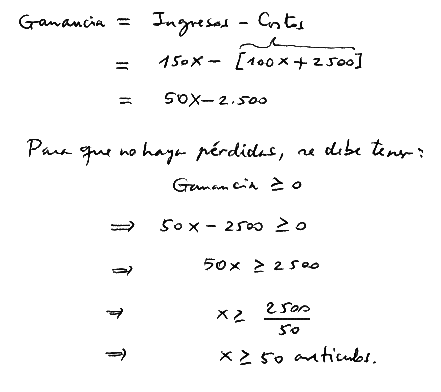 Ganancia = Ingresos - Costos
= 150x - [100x + 2500]
= 50x - 2.500
Para que no haya pérdidas, se debe tener:
Ganancia ≥ 0
⇒ 50x - 2500 ≥ 0
⇒ 50x ≥ 2500
⇒ x ≥ 2500/50
⇒ x ≥ 50 artículos.